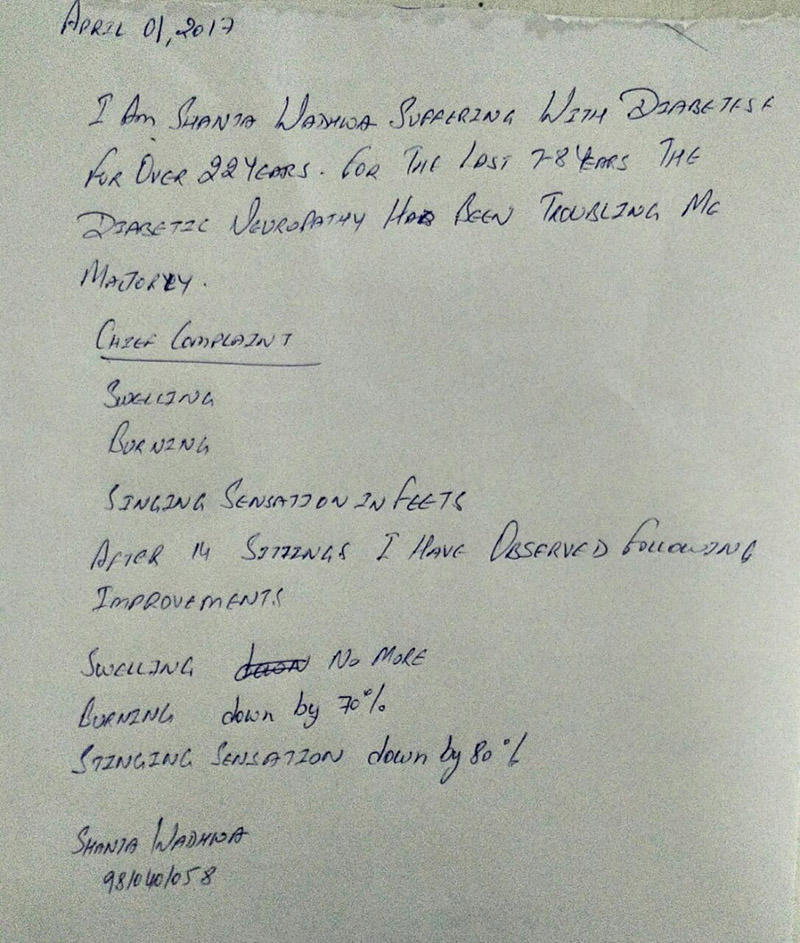 APRIL 01, 2017
I AM SHANTA WADHWA SUFFERING WITH DIABETESE
FOR OVER 22 YEARS. FOR THE LAST 7-8 YEARS THE
DIABETIC NEUROPATHY HAS BEEN TROUBLING ME
MAJORLY.
CHIEF COMPLAINT
SWELLING
BURNING
SINGING SENSATION IN FEETS
AFTER 14 SITTINGS I HAVE OBSERVED FOLLOWING
IMPROVEMENTS
SWELLING down NO MORE
BURNING down by 70%
STINGING SENSATION down by 80%
SHANTA WADHWA
9810401058